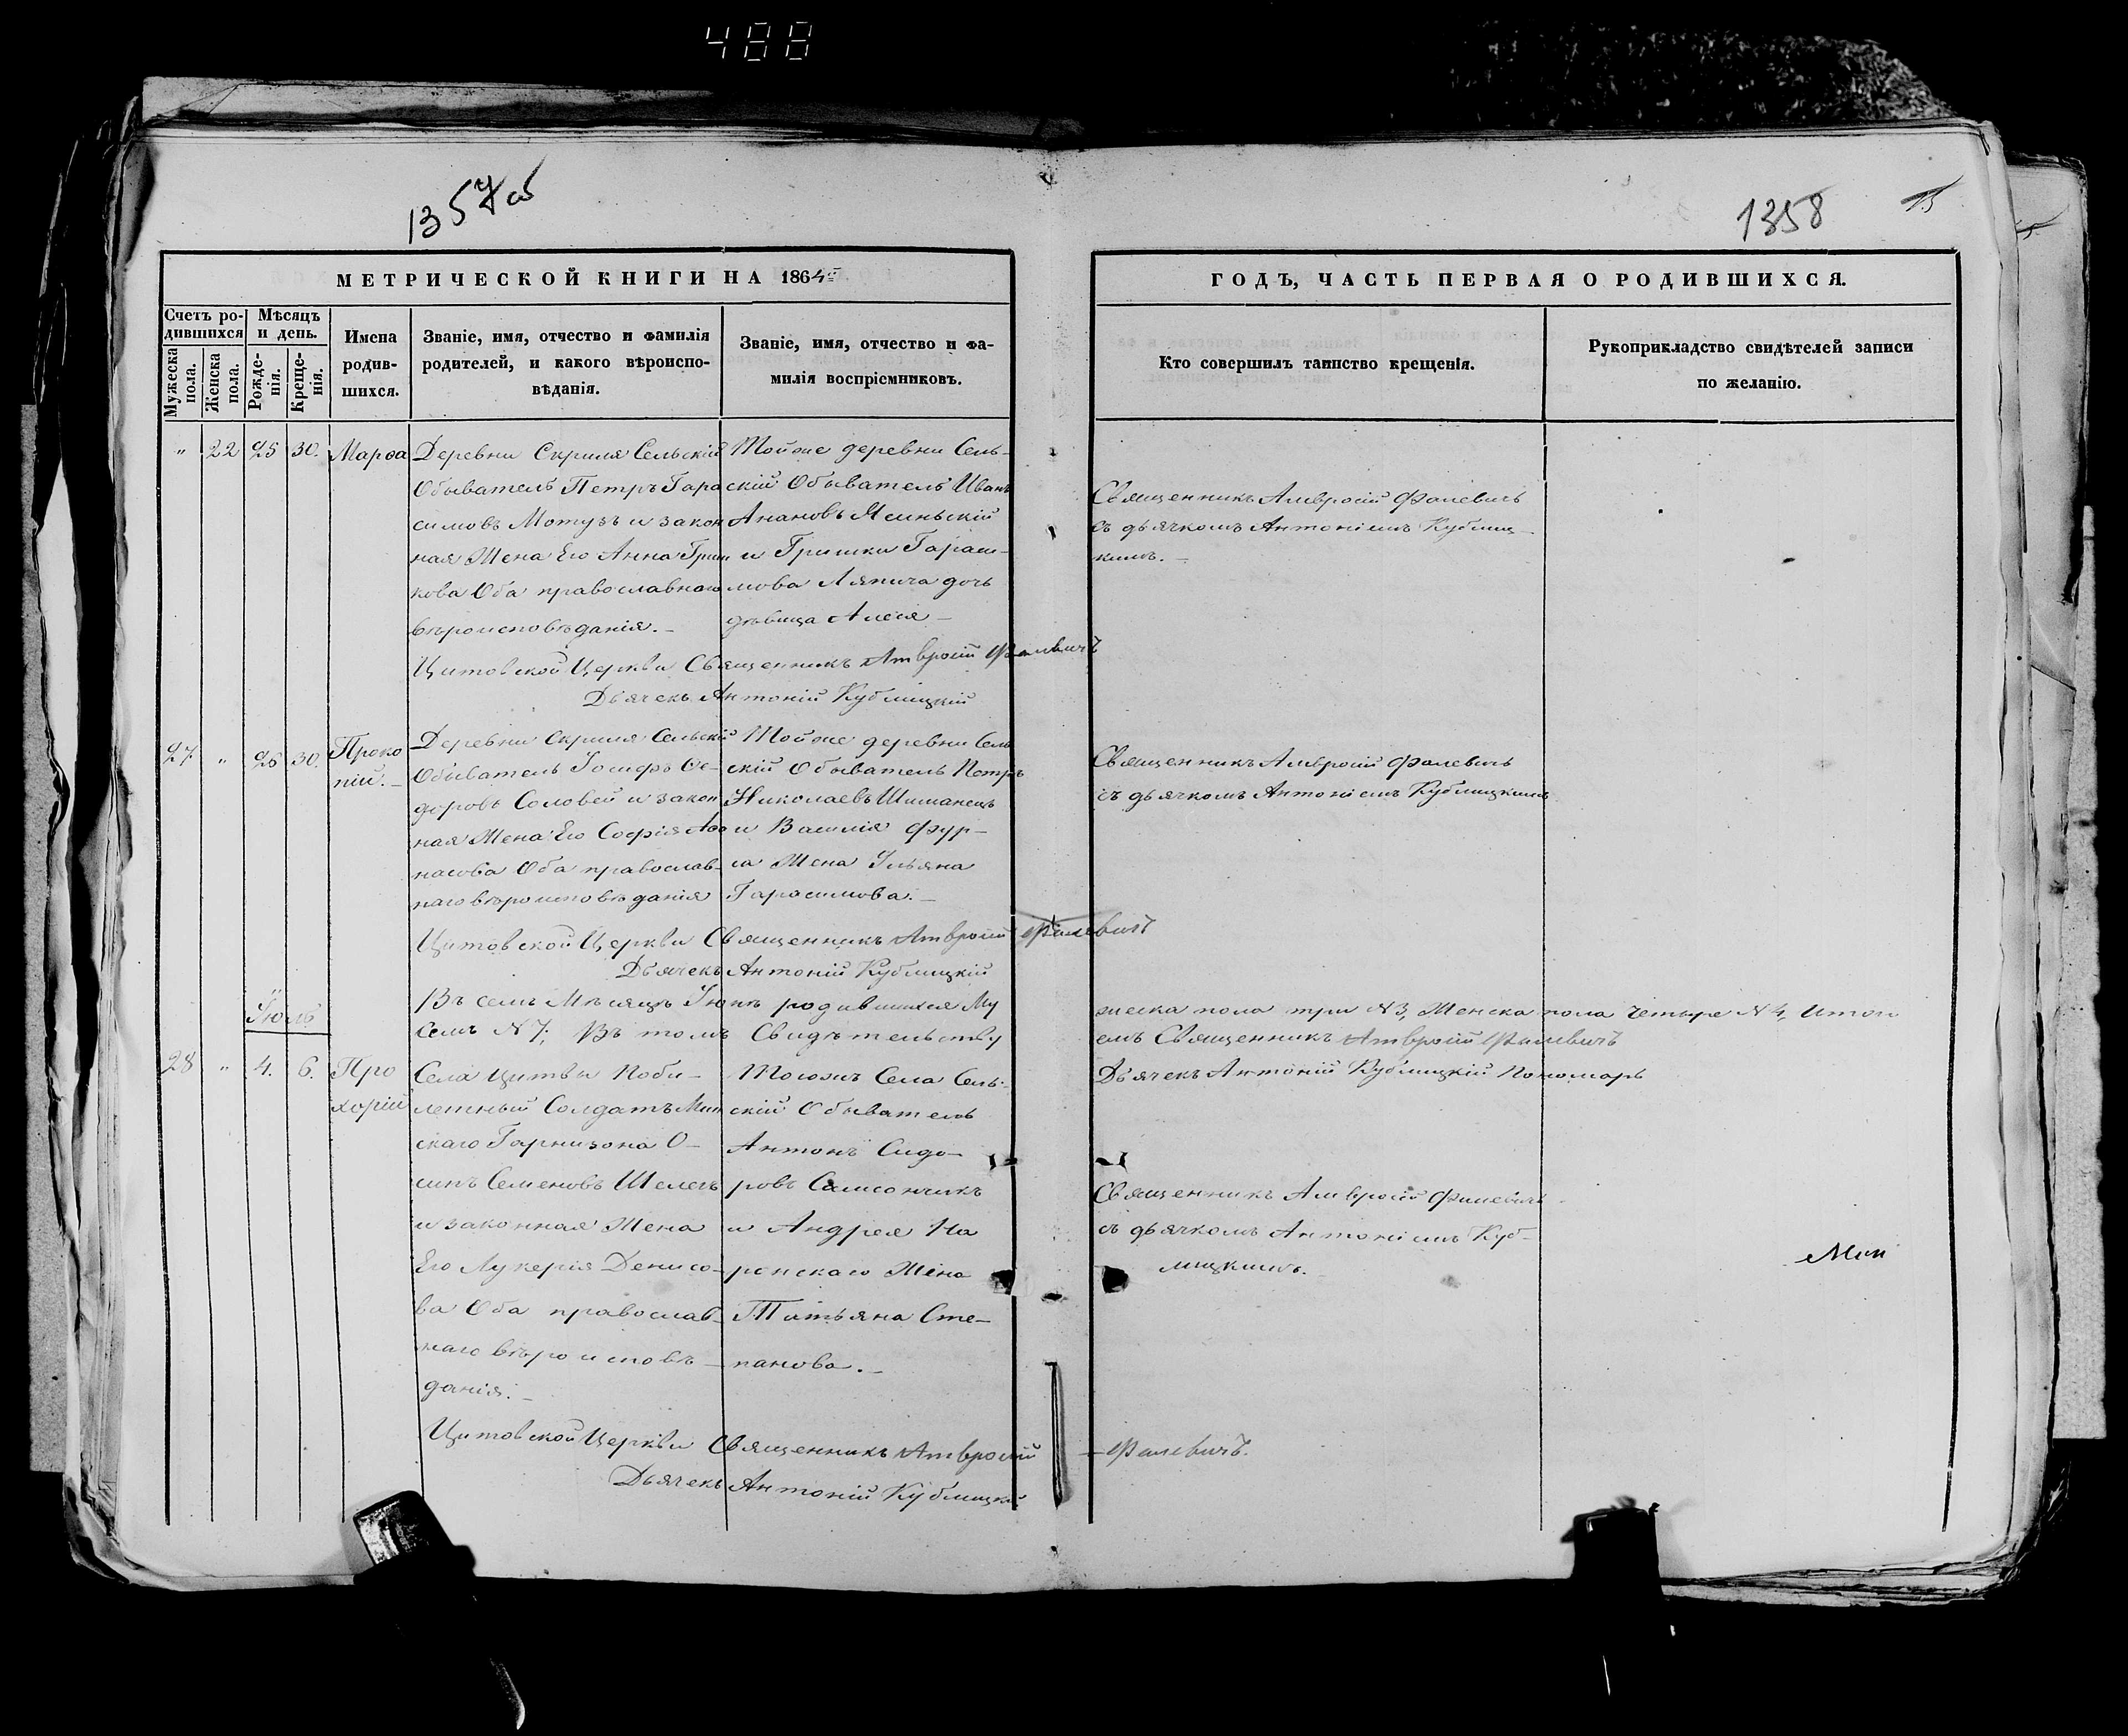 488
1357об
1358
15
МЕТРИЧЕСКОЙ КНИГИ НА 1864й
ГОДЪ, ЧАСТЬ ПЕРВАЯ О РОДИВШИХСЯ.
Счетъ ро-
дившихся
Мужеска пола.
Женска пола.
Мѣсяцъ
и день.
Рожде-
нія.
Креще-
нія.
Имена
родив-
шихся.
Званіе, имя, отчество и фамилія
родителей, и какого вѣроиспо-
вѣданія.
Званіе, имя, отчество и фа-
милія воспріемниковъ.
Кто совершилъ таинство крещенія.
Рукоприкладство свидѣтелей записи
по желанію.
" 22 25 30. Марѳа
Деревни Скриля Сельскій
Обыватель Петръ Гара
симовъ Мотузъ и закон
ная Жена Его Анна Гриш
кова Оба православнаго
вѣроисповѣданія.
Тойже деревни Сель-
скій Обыватель Иванъ
и Гришки Гараси-
мова Ляпича дочь
дѣвица Алеся
Священникъ Амвросій Фалевичъ
съ дьячкомъ Антоніемъ Кублиц-
кимъ.
Цитовской Церкви Священникъ Амвросій Фалевичъ
Дьячекъ Антоній Кублицкій
27 " 26 30. Проко
пій.
Деревни Скриля Сельскій
Обыватель Іосифъ Ѳе-
доровъ Соловей и закон
ная Жена Его Софія Аѳа
насова Оба православ-
наго вѣроисповѣданія
Тойже деревни Сель
скій Обыватель Петръ
Николаевъ Шиманецъ
и Василія Фур-
са Жена Ульяна
Гарасимова.
Священникъ Амвросій Фалевичъ
съ дьячкомъ Антоніемъ Кублицкимъ
Цитовской Церкви Священникъ Амвросій Фалевичъ
Дьячекъ Антоній Кублицкій
Въ семъ Мѣсяцѣ Іюнѣ родившихся Му
жеска пола три №3, Женска пола четыре №4, Итого
семь №7; Въ томъ Свидѣтельству
емъ Священникъ Амвросій Фалевичъ
Дьячекъ Антоній Кублицкій Пономарь
Іюль
28 " 4. 6. Про
хорій
Села Цитвы Поби-
летный Солдатъ Мин
скаго Гарнизона О-
сипъ Семеновъ Шелегъ
и законная Жена
Его Лукерія Денисо-
ва Оба православ-
наго вѣроисповѣ-
данія.
Тогожъ Села Сель-
скій Обыватель
Антонъ Сидо-
ровъ Самсончикъ
и Андрея На
ронскаго Жена
Татьяна Сте-
панова.
Священникъ Амвросій Фалевичъ
съ дьячкомъ Антоніемъ Куб-
лицкимъ.
Мин
Цитовской Церкви Священникъ Амвросій Фалевичъ.
Дьячекъ Антоній Кублицкій